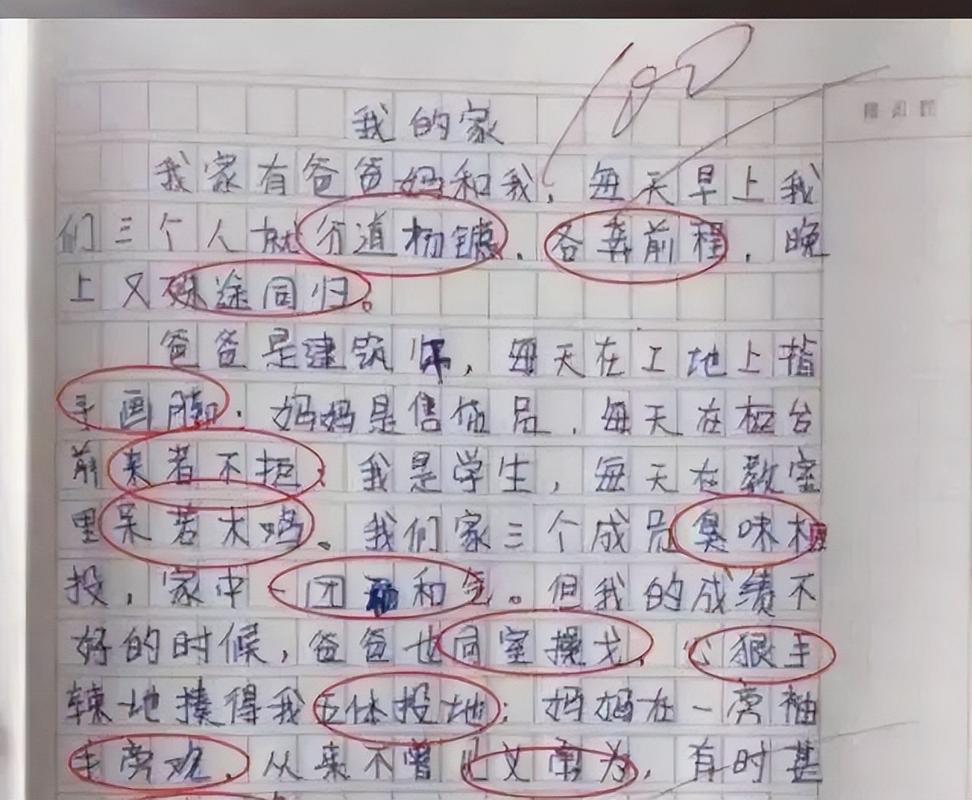 100
我的家
我家有爸爸妈和我，每天早上我
们三个人就分道杨镳，各奔前程，晚
上又殊途同归。
爸爸是建筑师，每天在工地上指
手画脚；妈妈是售货员，每天在柜台
前来者不拒，我是学生，每天在教室
里呆若木鸡。我们家三个成员臭味相
投，家中一团和气。但我的成绩不
好的时候，爸爸也同室操戈，心狠手
辣地揍得我五体投地；妈妈在一旁袖
手旁观，从来不曾见义勇为，有时甚